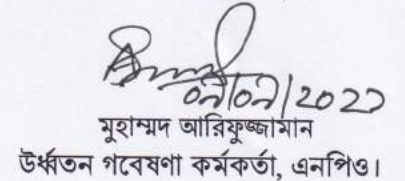 মুহাম্মদ আরিফুজ্জামান
উর্ধ্বতন গবেষণা কর্মকর্তা, এনপিও।